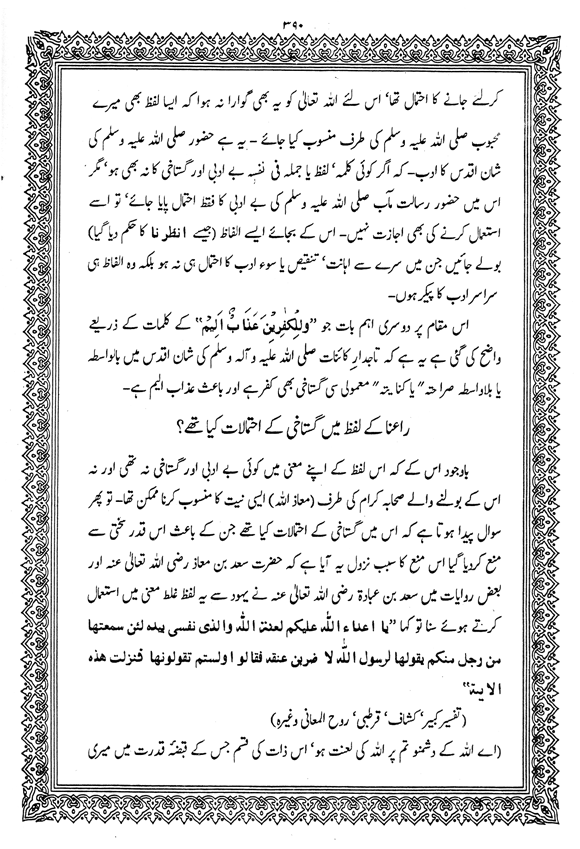 ۳۹۰
کرلئے جانے کا احتمال تھا‘ اس لئے اللہ تعالیٰ کو یہ بھی گوارا نہ ہوا کہ ایسا لفظ بھی میرے
محبوب صلی اللہ علیہ وسلم کی طرف منسوب کیا جائے۔ یہ ہے حضور صلی اللہ علیہ وسلم کی
شان اقدس کا ادب۔ کہ اگر کوئی کلمہ‘ لفظ یا جملہ فی نفسہٖ بے ادبی اور گستاخی کا نہ بھی ہو‘ مگر
اس میں حضور رسالت مآب صلی اللہ علیہ وسلم کی بے ادبی کا فقط احتمال پایا جائے‘ تو اسے
استعمال کرنے کی بھی اجازت نہیں۔ اس کے بجائے ایسے الفاظ (جیسے انظرنا کا حکم دیا گیا)
بولے جائیں جن میں سرے سے اہانت‘ تنقیص یا سوء ادب کا احتمال ہی نہ ہو بلکہ وہ الفاظ ہی
سراسر ادب کا پیکر ہوں۔
اس مقام پر دوسری اہم بات جو ”وَلِلْکٰفِرِیْنَ عَذَابٌ اَلِیْمٌ“ کے کلمات کے ذریعے
واضح کی گئی ہے یہ ہے کہ تاجدار کائنات صلی اللہ علیہ و آلہ وسلم کی شان اقدس میں بالواسطہ
یا بلاواسطہ صراحتہ“ یا کنایتہ“ معمولی سی گستاخی بھی کفر ہے اور باعث عذاب الیم ہے۔
راعنا کے لفظ میں گستاخی کے احتمالات کیا تھے؟
باوجود اس کے کہ اس لفظ کے اپنے معنی میں کوئی بے ادبی اور گستاخی نہ تھی اور نہ
اس کے بولنے والے صحابہ کرام کی طرف (معاذ اللہ) ایسی نیت کا منسوب کرنا ممکن تھا۔ تو پھر
سوال پیدا ہوتا ہے کہ اس میں گستاخی کے احتمالات کیا تھے جن کے باعث اس قدر سختی سے
منع کر دیا گیا اس منع کا سبب نزول یہ آیا ہے کہ حضرت سعد بن معاذ رضی اللہ تعالیٰ عنہ اور
بعض روایات میں سعد بن عبادۃ رضی اللہ تعالیٰ عنہ نے یہود سے یہ لفظ غلط معنی میں استعمال
کرتے ہوئے سنا تو کہا ”یا اعداء اللّٰہ علیکم لعنتہ اللّٰہ والذی نفسی بیدہ لئن سمعتھا
من رجل منکم یقولھا لرسول اللّٰہ لا ضربن عنقہ فقالوا اولستم تقولونھا فنزلت ھذہ
الایتہ“
(تفسیر کبیر‘ کشاف‘ قرطبی‘ روح المعانی وغیرہ)
(اے اللہ کے دشمنو تم پر اللہ کی لعنت ہو‘ اس ذات کی قسم جس کے قبضہٴ قدرت میں میری